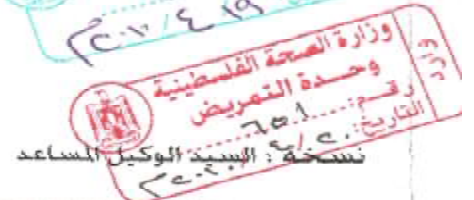 ٢٠١٠/٤/١٩م
وزارة الصحة الفلسطينية
وحدة التمريض
وارد
رقم: ٦٥١
التاريخ: ٢٠/٤/
نسخة : السيد الوكيل المساعد